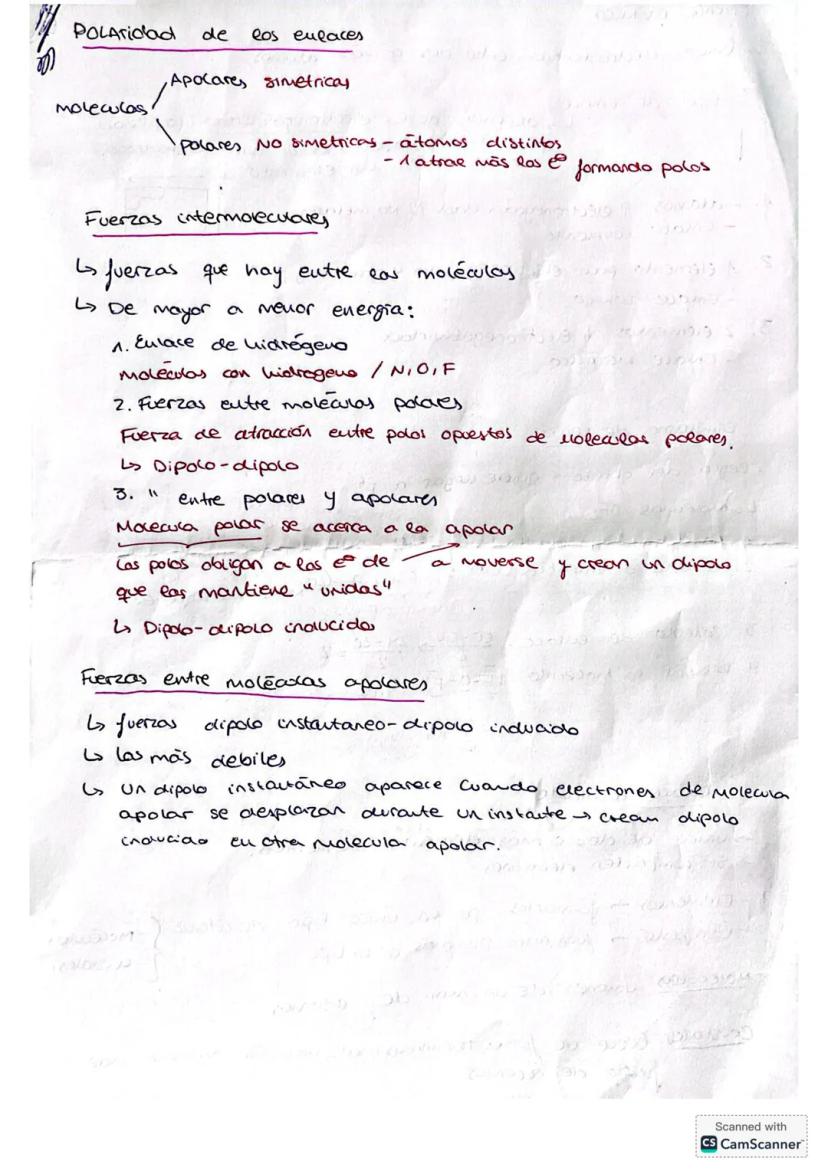 POLARidad de los enlaces
Apolares simétricas
moleculas
polares No simetricas - átomos distintos
- 1 atrae más los e⁻ formando polos
Fuerzas intermoleculares
↳ fuerzas que hay entre las moléculas
↳ De mayor a menor energía:
1. Enlace de hidrógeno
Moléculas con hidrogeno / N, O, F
2. Fuerzas entre moléculas polares
Fuerza de atracción entre polos opuestos de moleculas polares.
↳ Dipolo-dipolo
3. " entre polares y apolares
Molecula polar se acerca a la apolar
Los polos obligan a los e⁻ de a moverse y crean un dipolo
que las mantiene "unidas"
↳ Dipolo-dipolo inducido
Fuerzas entre moléculas apolares
↳ fuerzas dipolo instantaneo-dipolo inducido
↳ las más debiles
↳ Un dipolo instantáneo aparece cuando electrones de molecula
apolar se desplazan durante un instante → crean dipolo
inducido en otra molecula apolar.
Scanned with
CS CamScanner